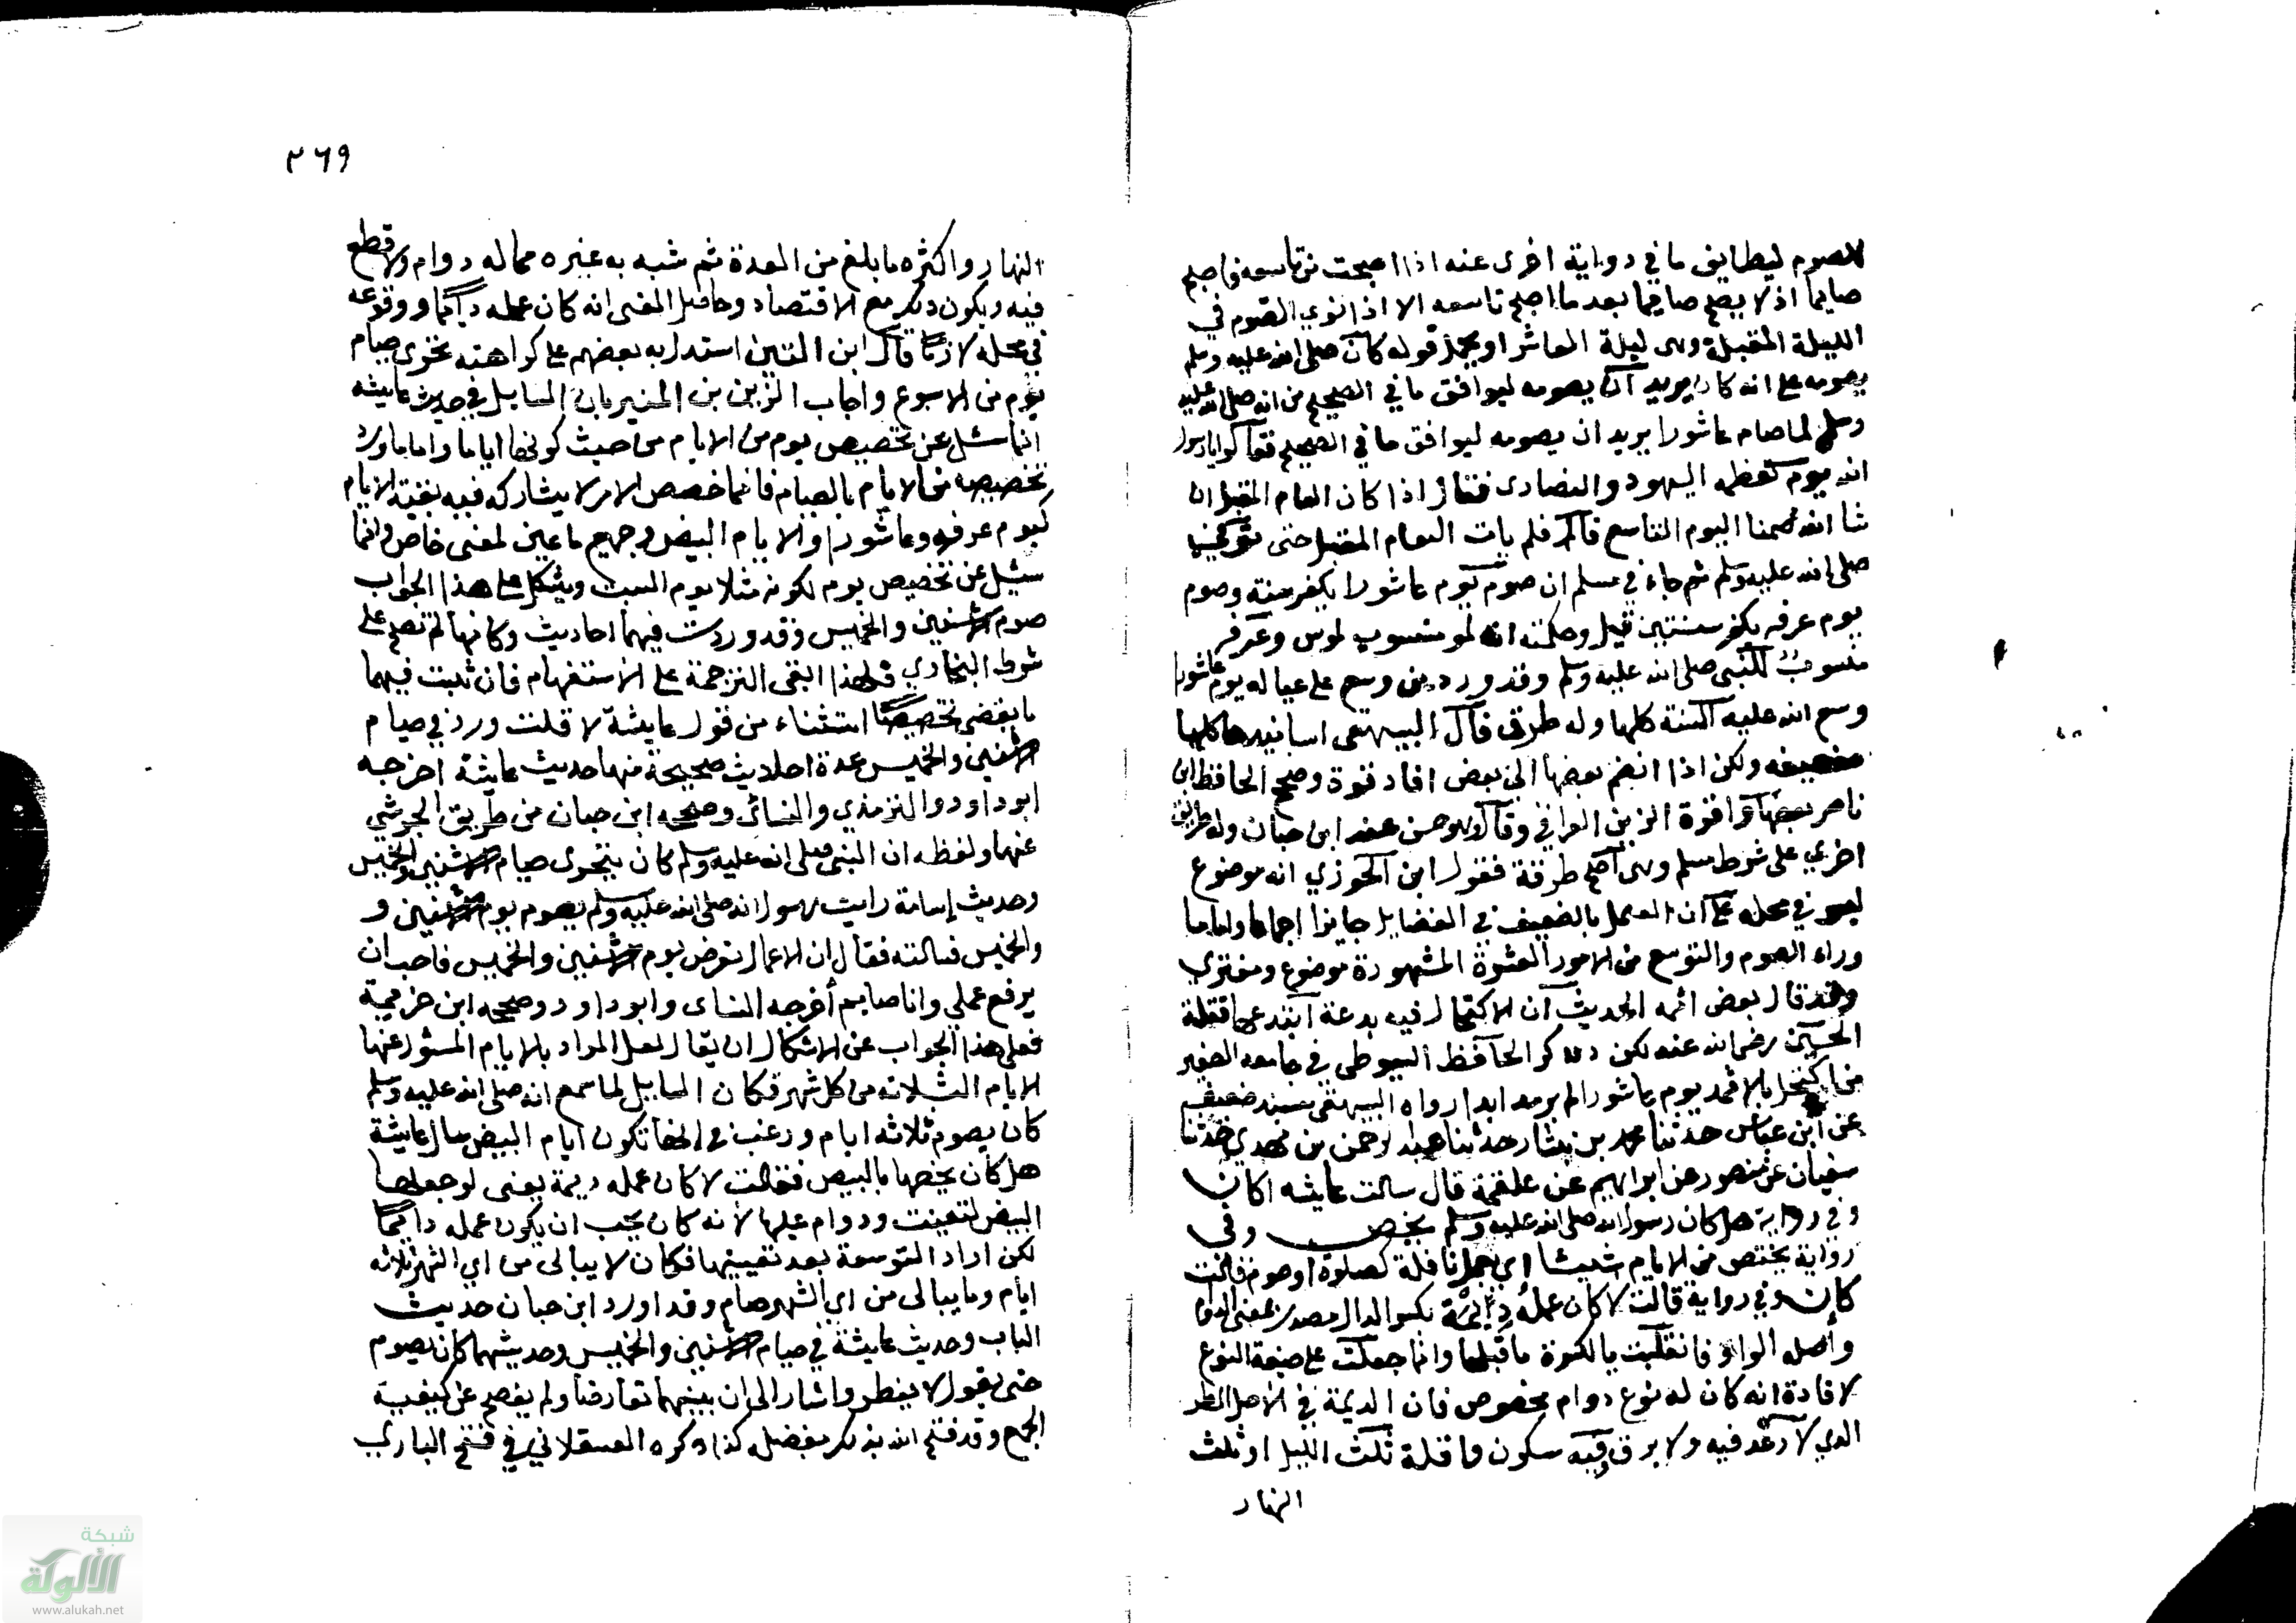 للصوم ليطابق ما في رواية اخرى عنه اذا اصبحت من تاسعه فاصبح
صايما اذ لا يصبح صايما بعد ما اصبح تاسعه الا اذا نوى الصوم في
الليلة المقبلة وهى ليلة العاشر او يحمل قوله كان صلى الله عليه وسلم
يصومه على انه كان يريد ان يصومه ليوافق ما في الصحيح من انه صلى الله عليه
وسلم لما صام عاشورا يريد ان يصومه ليوافق ما في الصحيح فقالوا يا رسول
الله يوم تعظمه اليهود والنصارى فقال اذا كان العام المقبل ان
شا الله صمنا اليوم التاسع قال فلم يات العام المقبل حتى توفى
صلى الله عليه وسلم ثم جاء في مسلم ان صوم يوم عاشورا يكفر سنة وصوم
يوم عرفه يكفر سنتين قيل وحكمته انه لمو منسوب لموسى وعرفه
منسوب للنبى صلى الله عليه وسلم وقد ورد من وسع على عياله يوم عاشورا
وسع الله عليه السنة كلها وله طرق قال البيهقى اسانيدها كلها
ضعيفه ولكن اذا انضم بعضها الى بعض افاد قوة وصحح الحافظ ابن
ناصر بعضها واقره الزين العراقي وقال وهو حسن عند ابن حبان وله طريق
اخرى على شرط مسلم وهى اصح طرقه فقول ابن الجوزي انه موضوع
ليس في محله على ان العمل بالضعيف في الفضايل جايز اجماعا واما ما
وراء الصوم والتوسع من الامور العشرة المشهورة موضوع ومفترى
وقد قال بعض ائمه الحديث ان الاكتحال فيه بدعة ابتدعها قتلة
الحسين رضى الله عنه لكن ذكر الحافظ السيوطى في جامعه الصغير
من اكتحل بالاثمد يوم عاشورا لم يرمد ابدا رواه البيهقى بسند ضعيف
عن ابن عباس حدثنا محمد بن بشار حدثنا عبد الرحمن بن مهدي حدثنا
سفيان عن منصور عن ابراهيم عن علقمة قال سالت عايشه اكان
وفي رواية هل كان رسول الله صلى الله عليه وسلم يخص وفى
رواية يختص من الايام شيئا اى بعمل نافلة كصلوة او صوم قالت
كان وفي رواية قالت لا كان عمله ديمة بكسر الدال مصدر بمعنى الدوام
واصله الواو فانقلبت بالكسرة ما قبلها وانما جعلت على صيغة النوع
لافادة انه كان له نوع دوام مخصوص فان الديمة في الاصل المطر
الدي لا رعد فيه ولا برق فيه سكون واقلة ثلث الليل او ثلث
النهار
٢٦٩
النهار واكثره ما بلغ من المدة ثم شبه به غيره مما له دوام ولا قطع
فيه ويكون ذلك مع الاقتصاد وحاصل المعنى انه كان عمله دائما ووقوعه
في محله لازما قال ابن التين استدل به بعضهم على كراهته تحرى صيام
يوم من الاسبوع واجاب الزين بن المنير بان السايل في حديث عايشه
انما سئل عن تخصيص يوم من الايام من حيث كونها اياما واما ما ورد
تخصيصه من الايام بالصيام فانما خصص الامر لا يشاركه فيه بقية الايام
كيوم عرفه وعاشورا والايام البيض وجميع ما عين لمعنى خاص وانما
سئيل عن تخصيص يوم لكونه مثلا يوم السبت ويشكل على هذا الجواب
صوم الاثنين والخميس فقد وردت فيهما احاديث وكانها لم تصح على
شرط البخاري فلهذا ابقى الترجمة على الاستفهام فان ثبت فيهما
ما يقضى تخصيصا استثناء من قول عايشة لا قلت ورد في صيام
الاثنين والخميس عدة احاديث صحيحة منها حديث عايشة اخرجه
ابو داود والترمذي والنسائى وصححه ابن حبان من طريق الجرشي
عنها ولفظه ان النبى صلى الله عليه وسلم كان يتحرى صيام الاثنين والخميس
وحديث اسامة رايت رسول الله صلى الله عليه وسلم يصوم يوم الاثنين و
والخميس فسالته فقال ان الاعمال تعرض يوم الاثنين والخميس فاحب ان
يرفع عملي وانا صايم أخرجه النساى وابو داود وصححه ابن خزيمة
فعلى هذا الجواب عن الاشكال ان يقال لعل المراد بالايام المسئول عنها
الايام الثلاثه من كل شهر فكان السايل لما سمع انه صلى الله عليه وسلم
كان يصوم ثلاثه ايام ورغب في انها تكون ايام البيض سال عايشة
هل كان يخصها بالبيض فقالت لا كان عمله ديمة يعنى لو جعلها
البيض لتعينت ودوام عليها لانه كان يحب ان يكون عمله دائما
لكن اراد التوسعة بعد تعيينها فكان لا يبالى من اي الشهر ثلاثه
ايام وما يبالى من اى الشهر صام وقد اورد ابن حبان حديث
الباب وحديث عايشة في صيام الاثنين والخميس وحديثهما كان يصوم
حتى يقول لا يفطر واشار الى ان بينهما تعارضا ولم يفصح عن كيفية
الجمع وقد فتح الله بذلك بفضله كذا ذكره العسقلاني في فتح الباري
شبكة
الألوكة
www.alukah.net